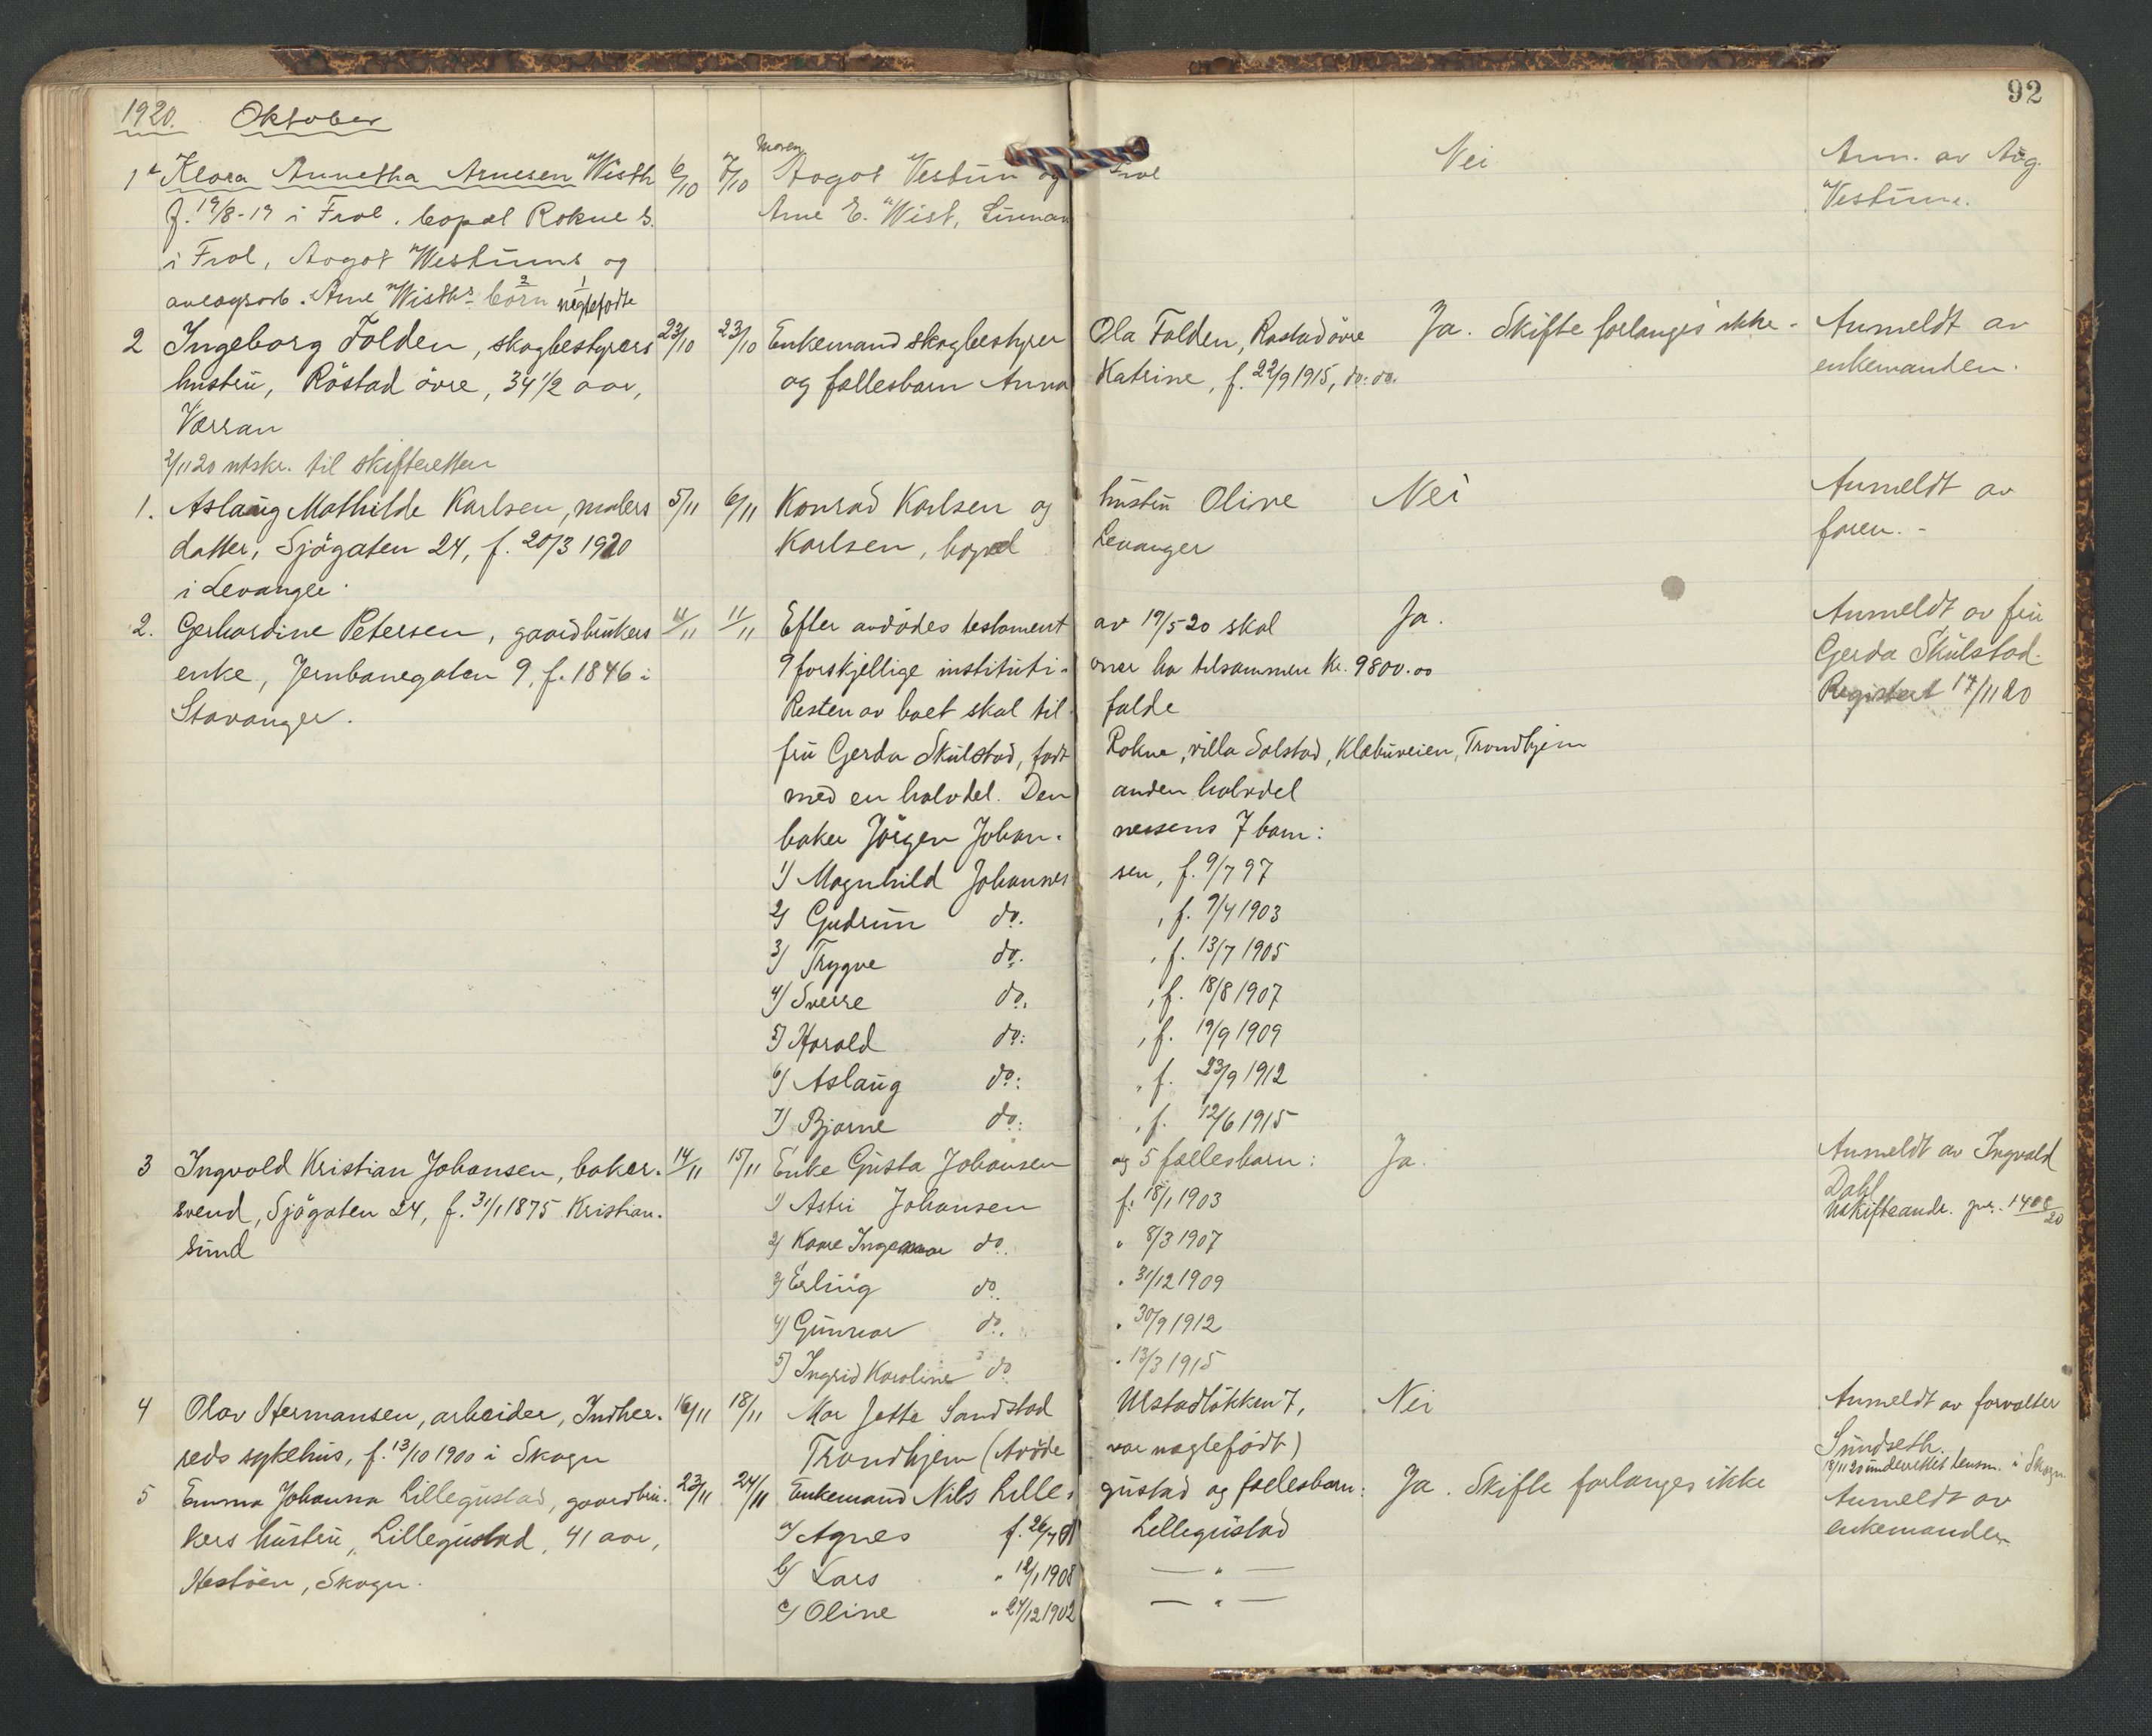 92
1920. Oktober
1. Klara Annetha Arnesen Wisth 6/10 7/10 Moren Aagot Vestum og Frol Nei Anm. av Aag.
f. 19/8-19 i Frol. bopæl Rokne s. Arne E. Wist, Vestum.
i Frol, Aagot Westums og
anlægsarb. Arne Wisths 2 børn 1 negtefødte
2 Ingeborg Folden, skogbestyrers 23/10 23/10 Enkemand skogbestyrer Ola Folden, Røstad övre Ja. Skifte forlanges ikke. Anmeldt av
hustru, Röstad övre, 34 1/2 aar, og fællesbarn Anna Katrine, f. 22/9 1915, do. do. enkemanden.
Værran
2/11 20 utskr. til skifteretten
1. Aslaug Mathilde Karlsen, malers 5/11 6/11 Konrad Karlsen og hustru Oline Nei Anmeldt av
datter, Sjögaten 24, f. 20/3 1920 Karlsen, bopæl Levanger faren. -
i Levanger.
2. Gerhardine Petersen, gaardbrukers 11/11 11/11 Efter avdödes testament av 19/5 20 skal Ja. Anmeldt av fru
enke, Jernbanegaten 9, f. 1846 i 9 forskjellige instituti- oner ha tilsammen kr. 9800.00 Gerda Skulstad.
Stavanger. Resten av boet skal til- falde Registert 17/11 20
fru Gerda Skulstad, födt Rokne, villa Solstad, Klæbuveien, Trondhjem
med en halvdel. Den anden halvdel
baker Jörgen Johan- nessens 7 barn:
1) Magnhild Johannes sen, f. 9/7 97
2) Gudrun do. , f. 9/4 1903
3) Trygve do. , f. 13/7 1905
4) Sverre do. , f. 18/8 1907
5) Harald do: , f. 19/9 1909
6) Aslaug do: , f. 23/9 1912
7) Bjarne do: , f. 12/6 1915
3 Ingvald Kristian Johansen, baker- 14/11 15/11 Enke Gusta Johansen og 5 fællesbarn: Ja. Anmeldt av Ingvald
svend, Sjögaten 24, f. 31/1 1875 Kristian- 1) Astri Johansen f. 18/1 1903 Dahl
sund 2) Kaare do. " 8/3 1907 Uskifteandr. jnr. 1408/20
3) Erling do. " 31/12 1909
4) Gunnar do. " 30/9 1912
5) Ingrid Karoline do " 13/3 1915
4 Olav Hermansen, arbeider, Indher- 16/11 18/11 Mor Jette Sandstad Ulstadlökken 7, Nei Anmeldt av forvalter
reds sykehus, f. 13/10 1900 i Skogn Trondhjem (Avdöde var uægtefödt) Sundseth.
18/11 20 underrettet lensm. i Skogn.
5 Emma Johanna Lillegustad, gaardbru- 23/11 24/11 Enkemand Nils Lille- gustad og fællesbarn: Ja. Skifte forlanges ikke Anmeldt av
kers hustru, Lillegustad, 41 aar, a) Agnes Lillegustad enkemanden
Skogn. b) Lars " 12/1 1908 — " —
c) Oline " 27/12 1902 — " —